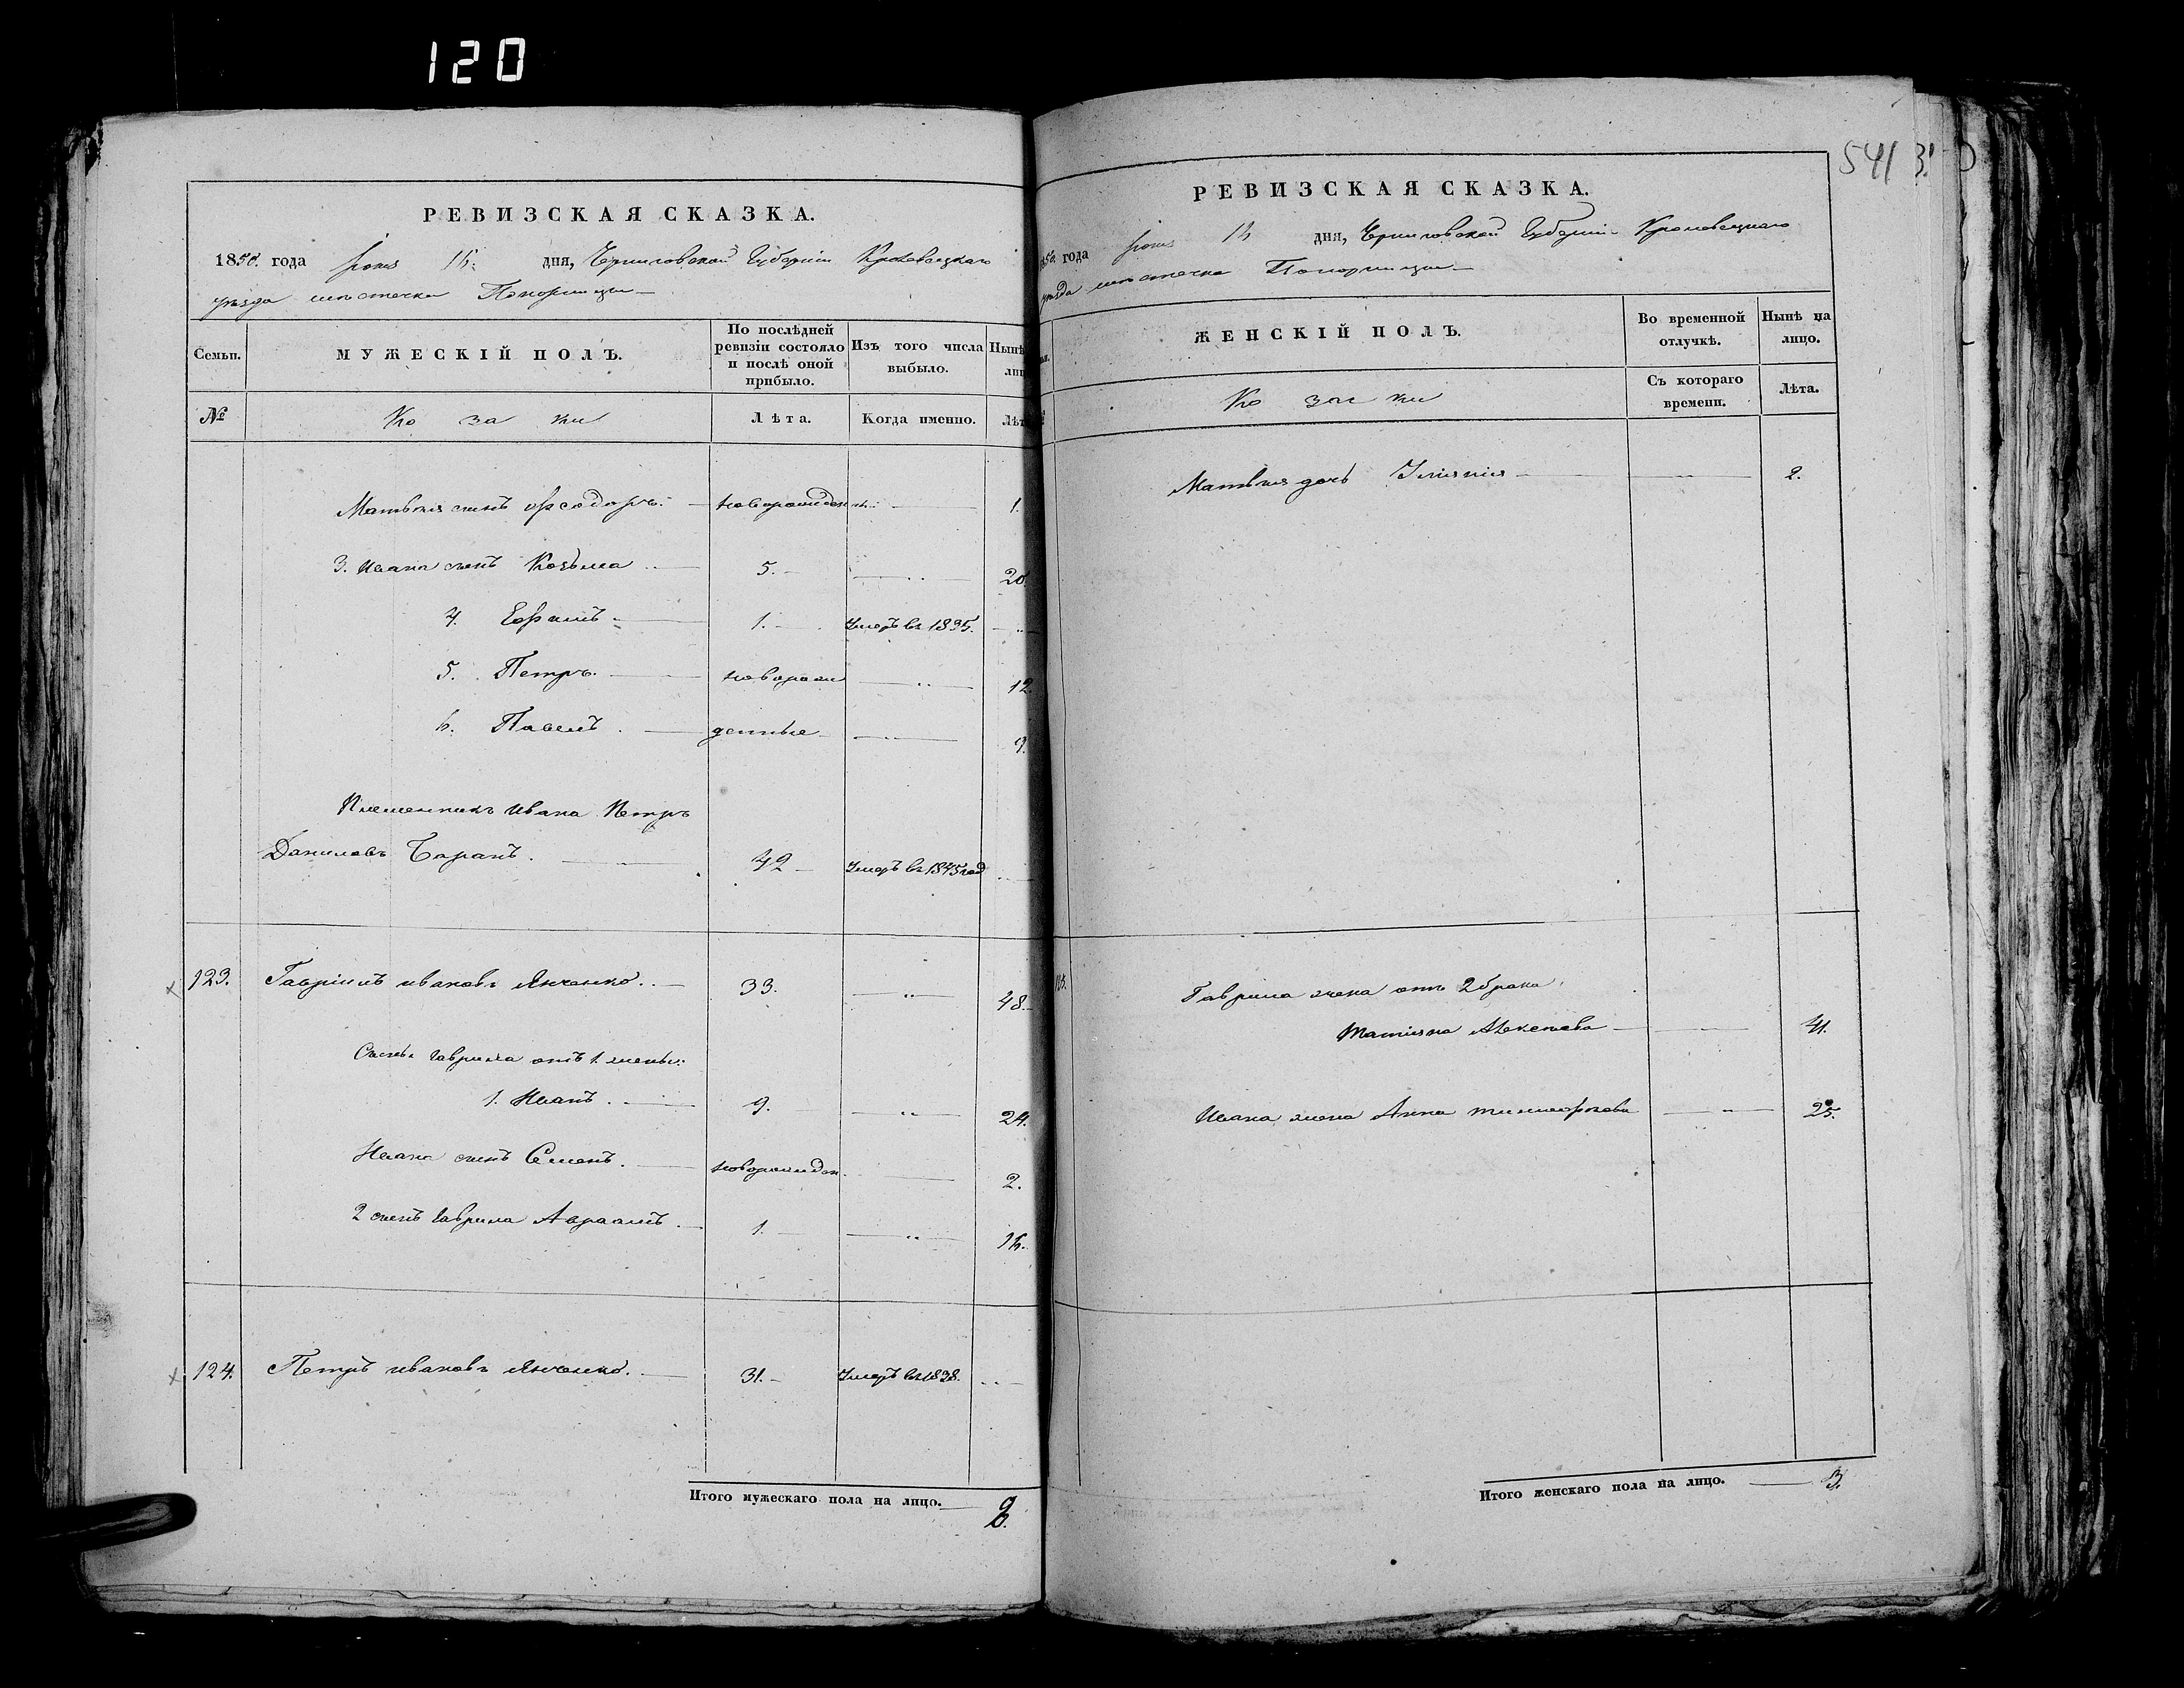 120
РЕВИЗСКАЯ СКАЗКА.
1850. года Іюня 16. дня, Черниговской Губерніи Кролевецкаго
уезда местечка Понорницы
Семьи. МУЖЕСКІЙ ПОЛЪ. По послѣдней ревизіи состояло и послѣ оной прибыло. Изъ того числа выбыло. Нынѣ
№ Козаки Лѣта. Когда именно. Лѣт
Матвѣя сынъ Ѳеодоръ новорожден 1.
3. Ивана сынъ Козьма 5. 20.
4. Ефимъ 1. Умеръ въ 1835.
5. Петръ новорож 12.
6. Павелъ денные 9.
Племенникъ Ивана Петръ
Даниловъ Баранъ. 42 Умеръ въ 1845 год
123. Гавріилъ Ивановъ Янченко. 33. 48.
Сыновья Гаврила отъ 1 жены:
1. Иванъ. 9. 24.
Ивана сынъ Семенъ. новорожден. 2.
2 сынъ Гаврила Авраамъ. 1. 16.
124. Петръ Ивановъ Янченко. 31. Умеръ въ 1838.
Итого мужескаго пола на лицо.
541
РЕВИЗСКАЯ СКАЗКА.
1850. года Іюня 16 дня, Черниговской Губерніи Кролевецкаго
уезда местечка Понорницы
ЖЕНСКІЙ ПОЛЪ. Во временной отлучкѣ. Нынѣ на лицо.
Козаки Съ котораго времени. Лѣта.
Матвѣя дочь Уліянія 2.
Гаврила жена отъ 2 брака
Татіяна Алексѣева 41.
Ивана жена Анна Тимофѣева 25.
Итого женскаго пола на лицо. 3.